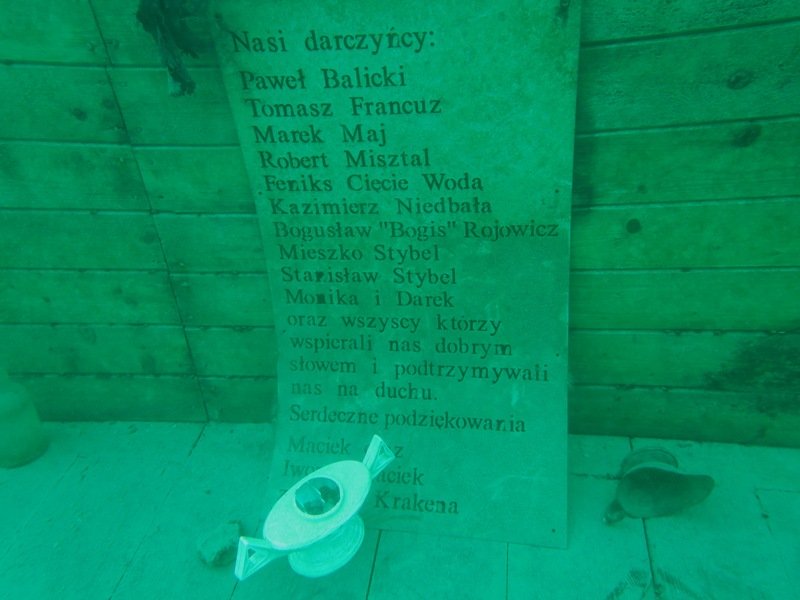 Nasi darczyńcy:
Paweł Balicki
Tomasz Francuz
Marek Maj
Robert Misztal
Feniks Cięcie Woda
Kazimierz Niedbała
Bogusław "Bogis" Rojowicz
Mieszko Stybel
Stanisław Stybel
Monika i Darek
oraz wszyscy którzy
wspierali nas dobrym
słowem i podtrzymywali
nas na duchu.
Serdeczne podziękowania
Maciek
Krakena